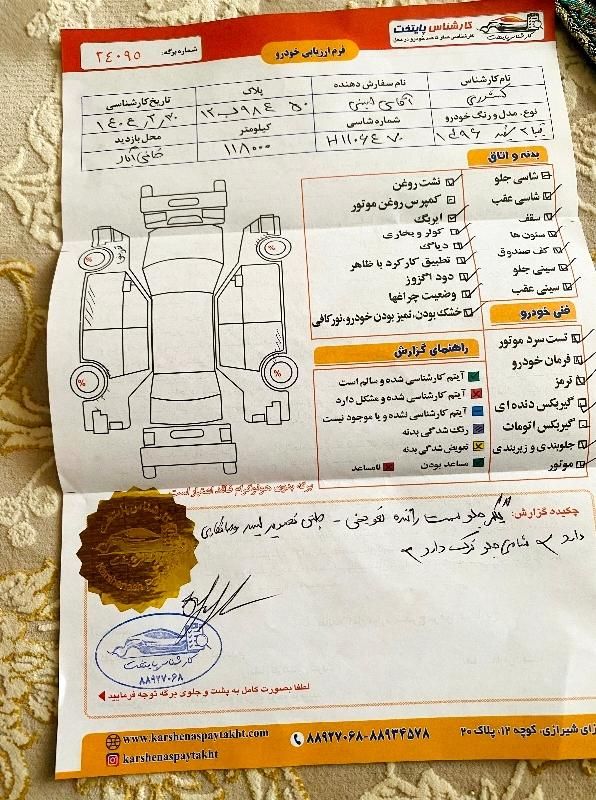 کارشناس پایتخت
کارشناسی صفر تا صد خودرو در محل
فرم ارزیابی خودرو
شماره برگه: ۲۴۰۹۵
نام کارشناس
نام سفارش دهنده
پلاک
تاریخ کارشناسی
نوع، مدل و رنگ خودرو
شماره شاسی
کیلومتر
۱۱۸۰۰۰
محل بازدید
بدنه و اتاق
شاسی جلو
شاسی عقب
سقف
ستون ها
کف صندوق
سینی جلو
سینی عقب
نشت روغن
کمپرس روغن موتور
ایربگ
کولر و بخاری
دیاگ
تطبیق کارکرد با ظاهر
دود اگزوز
وضعیت چراغها
خشک بودن، تمیز بودن خودرو، نور کافی
فنی خودرو
تست سرد موتور
فرمان خودرو
ترمز
گیربکس دنده ای
گیربکس اتومات
جلوبندی و زیربندی
موتور
راهنمای گزارش
آیتم کارشناسی شده و سالم است
آیتم کارشناسی شده و مشکل دارد
آیتم کارشناسی نشده و یا موجود نیست
رنگ شدگی بدنه
تعویض شدگی بدنه
مساعد بودن
نامساعد
% % % %
برگه بدون هولوگرام فاقد اعتبار است
چکیده گزارش: گلگیر جلو سمت راننده تعویض -
دارد شاسی جلو ترک دارد
کارشناس پایتخت
۸۸۹۲۷۰۶۸
لطفا بصورت کامل به پشت و جلوی برگه توجه فرمایید
زای شیرازی، کوچه ۱۲، پلاک ۲۰
۸۸۹۲۷۰۶۸-۸۸۹۳۴۵۷۸
www.karshenaspaytakht.com
karshenaspaytakht